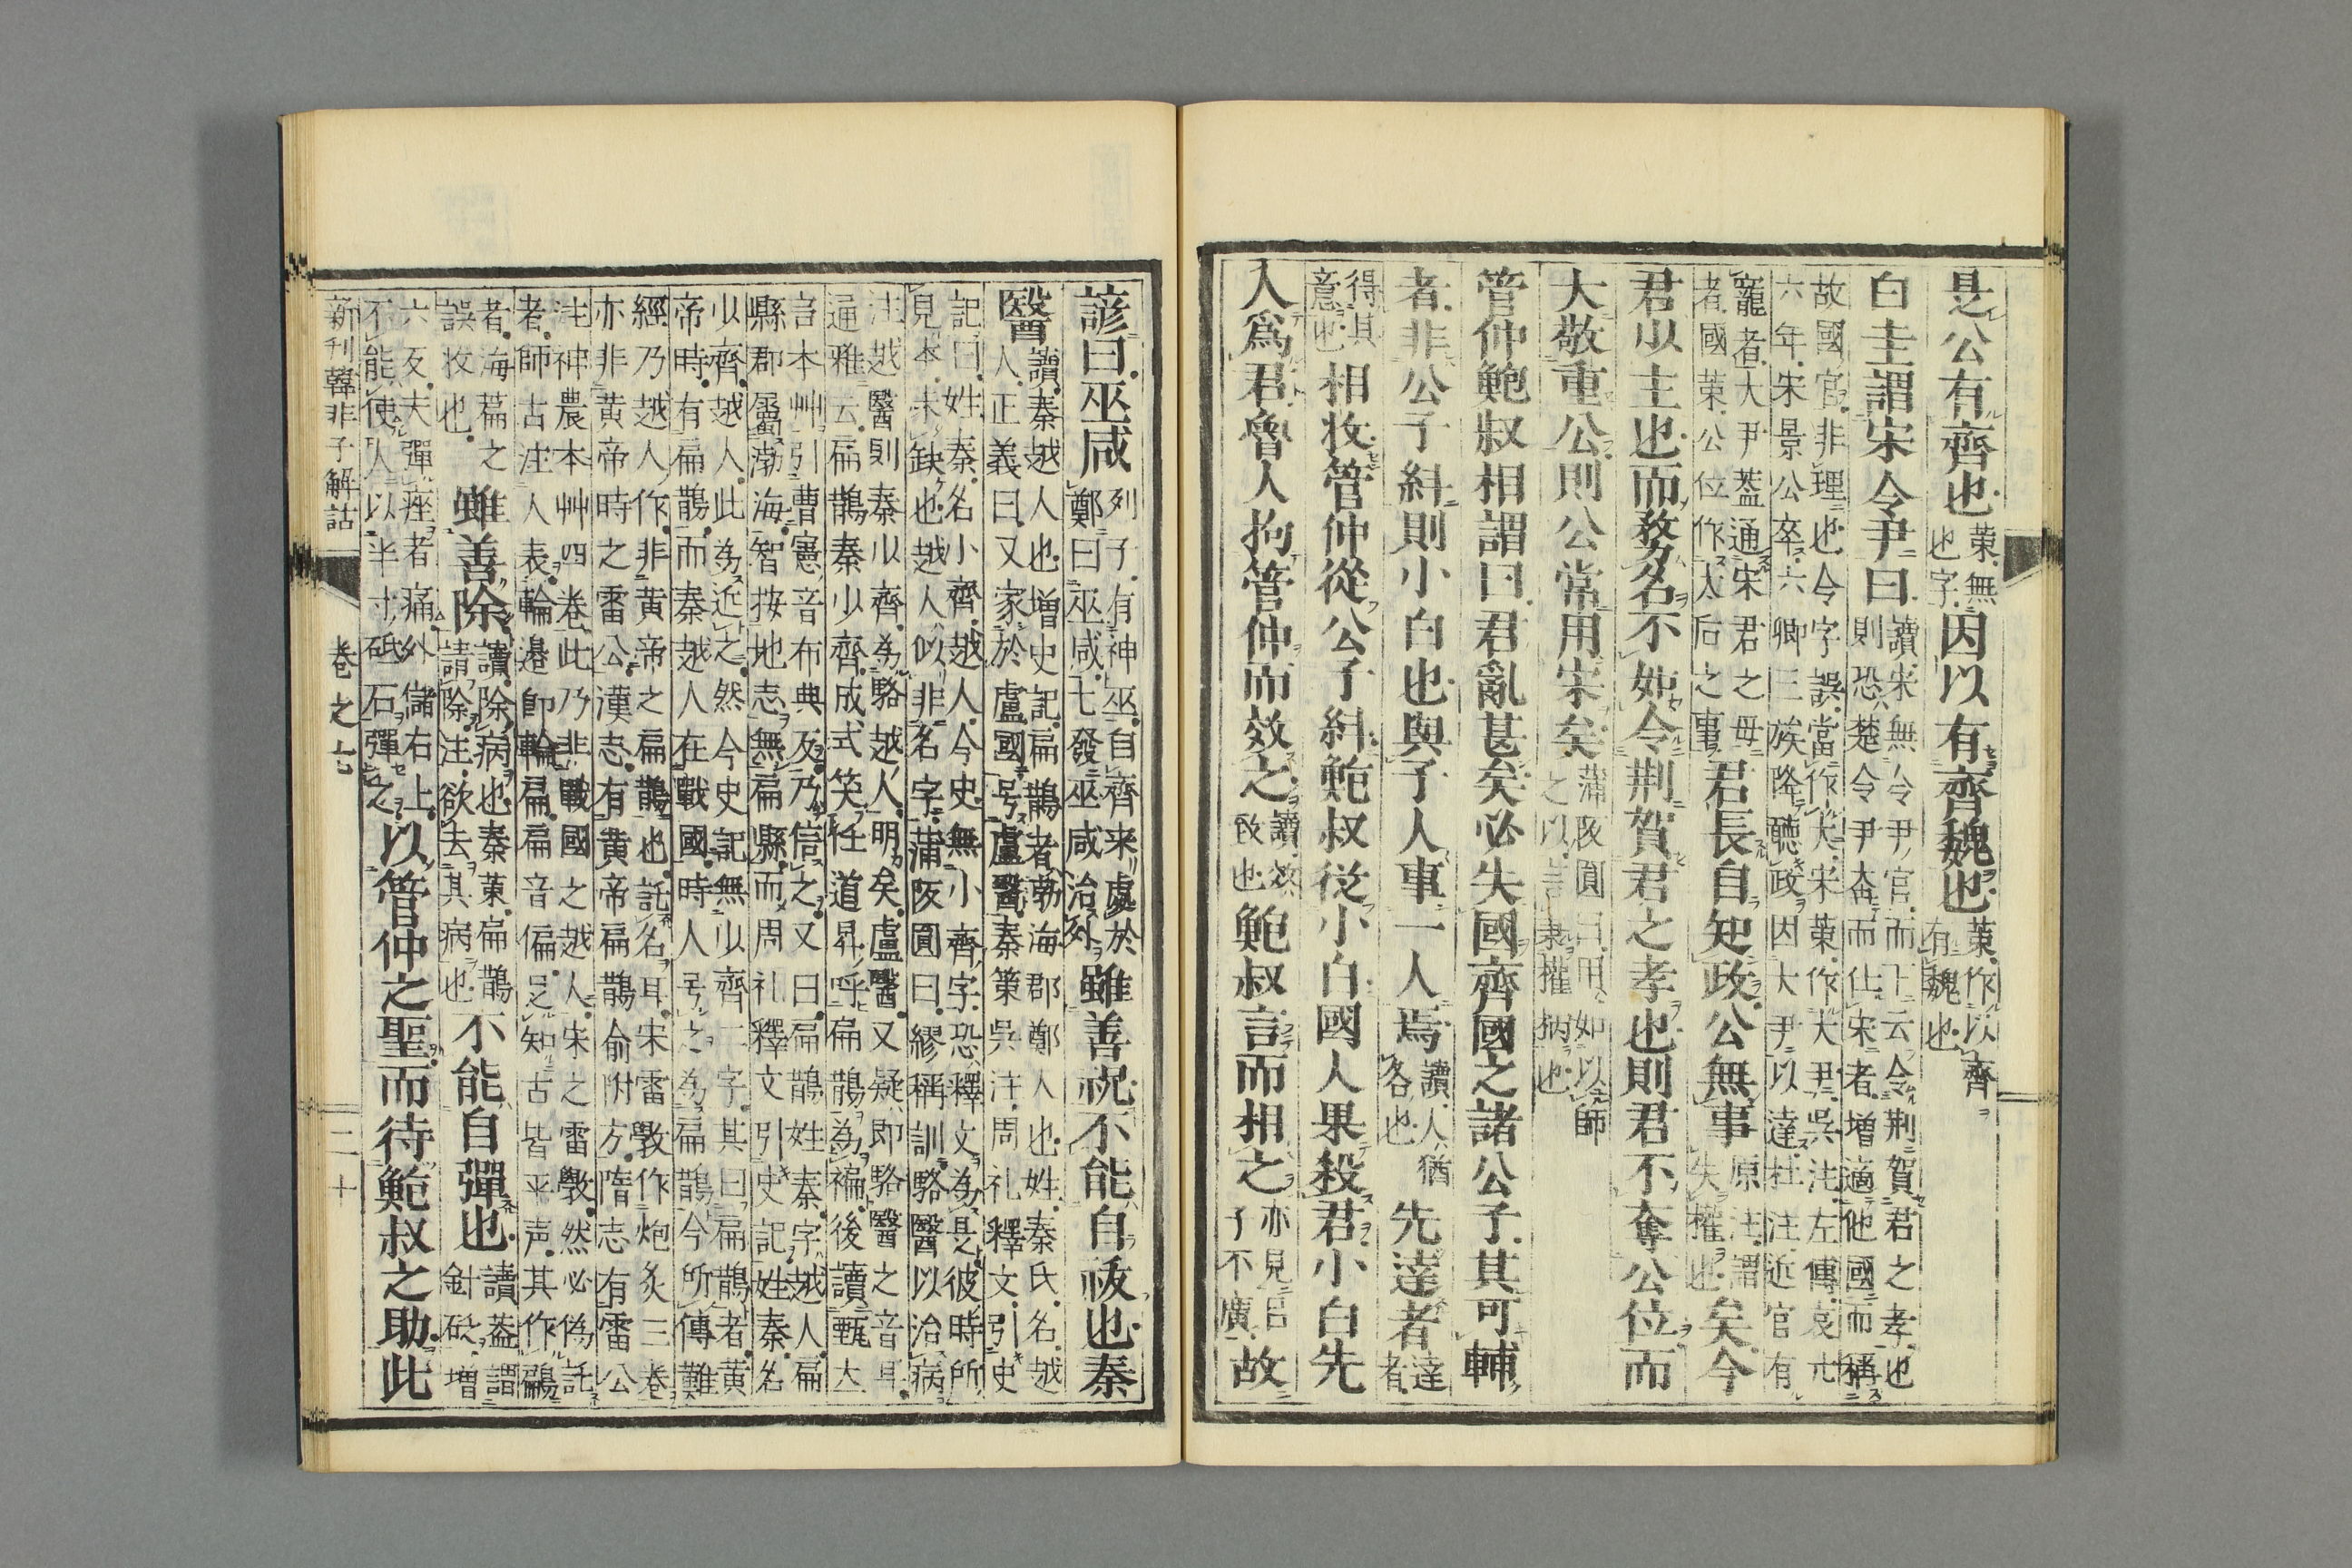 是公有齊也策無也字因以有齊魏也策作以齊有魏也
白圭謂宋令尹曰讀宋無令尹官而上云令荆賀君之孝也則恐楚令尹大甾而仕宋者増適他國而稱
故國官非理也令字誤當作大宋策作大尹呉注左傳哀廿六年宋景公卒六卿三族降聽政因大尹以達杜注近官有
寵者大尹葢通宋君之母者國策公位作太后之事君長自知政公無事原注謂失權也矣今
君少主也而務名不如令荆賀君之孝也則君不奪公位而
大敬重公則公常用宋矣蒲阪圓曰用如以師之以言秉權柄也
管仲鮑叔相謂曰君亂甚矣必失國齊國之諸公子其可輔
者非公子糾則小白也與子人事一人焉讀人猶各也先達者達者
得其意也相收管仲從公子糾鮑叔從小白國人果殺君小白先
入爲君魯人拘管仲而效之讀效致也鮑叔言而相之亦見呂子不廣故
諺曰巫咸列子有神巫自齊来處於鄭曰巫咸七發巫咸治外雖善祝不能自祓也秦
醫讀秦越人也増史記扁鵲者勃海郡鄭人也姓秦氏名越人正義曰又家於盧國号盧醫秦策呉注周礼釋文引史
記曰姓秦名小齊越人今史無小齊字恐釋文為是彼時所見本未缺也越人似非名字蒲阪圓曰繆稱訓駱醫以治病
注越醫則秦少齊為駱越人明矣盧醫又疑即駱醫之音耳通雅云扁鵲秦少齊成式笑任道昇呼扁鵲為褊後讀甄大
言本艸引曹憲音布典反乃信之又曰扁鵲姓秦字越人扁縣郡屬渤海智按地志無扁縣而周礼釋文引史記姓秦名
少齊越人此為近之然今史記無少齊二字其曰扁鵲者黄帝時有扁鵲而秦越人在戰國時人号之為扁鵲今所傳難
經乃越人作非黄帝之扁鵲也託名耳宋雷斅作炮炙三卷亦非黄帝時之雷公漢志有黄帝扁鵲俞附方隋志有雷公
注神農本艸四卷此乃非戰國之越人宋之雷斅然必偽託者師古注人表輪邉即輪扁扁音偏足知古皆平声其作鶣
者海篇之誤收也雖善除讀除病也秦策扁鵲請除注欲去其病也不能自彈也讀葢謂金針砭増
六反夫彈痤者痛外儲右上不能使人以半寸砥石彈之以管仲之聖而待鮑叔之助此
新刊韓非子解詁
卷之七
二十